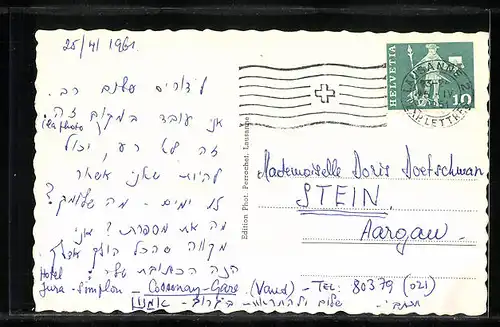 25/4/1961.
לדוריס שלום רב.
אני עובד במקום זה.
(la photo)
זה לא רע, יכול
להיות שאני אשאר
ימים - מה שלומך?
מה את מספרת? אני
מקווה שהכל
הנה הכתובת שלי:
Hotel
Jura-Simplon - Cossonay-Gare (Vaud) - TEL: 80379 (021)
שלום ולהתראות
Edition Phot. Perrochet, Lausanne
HELVETIA
10
LAUSANNE
Mademoiselle Doris Doetschman
STEIN
Aargau